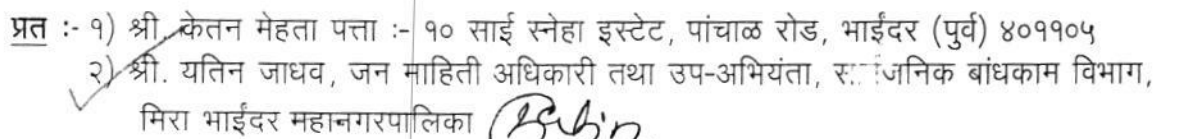 प्रत :- १) श्री. केतन मेहता पत्ता :- १० साई स्नेहा इस्टेट, पांचाळ रोड, भाईंदर (पुर्व) ४०११०५
२) श्री. यतिन जाधव, जन माहिती अधिकारी तथा उप-अभियंता, बांधकाम विभाग,
मिरा भाईंदर महानगरपालिका